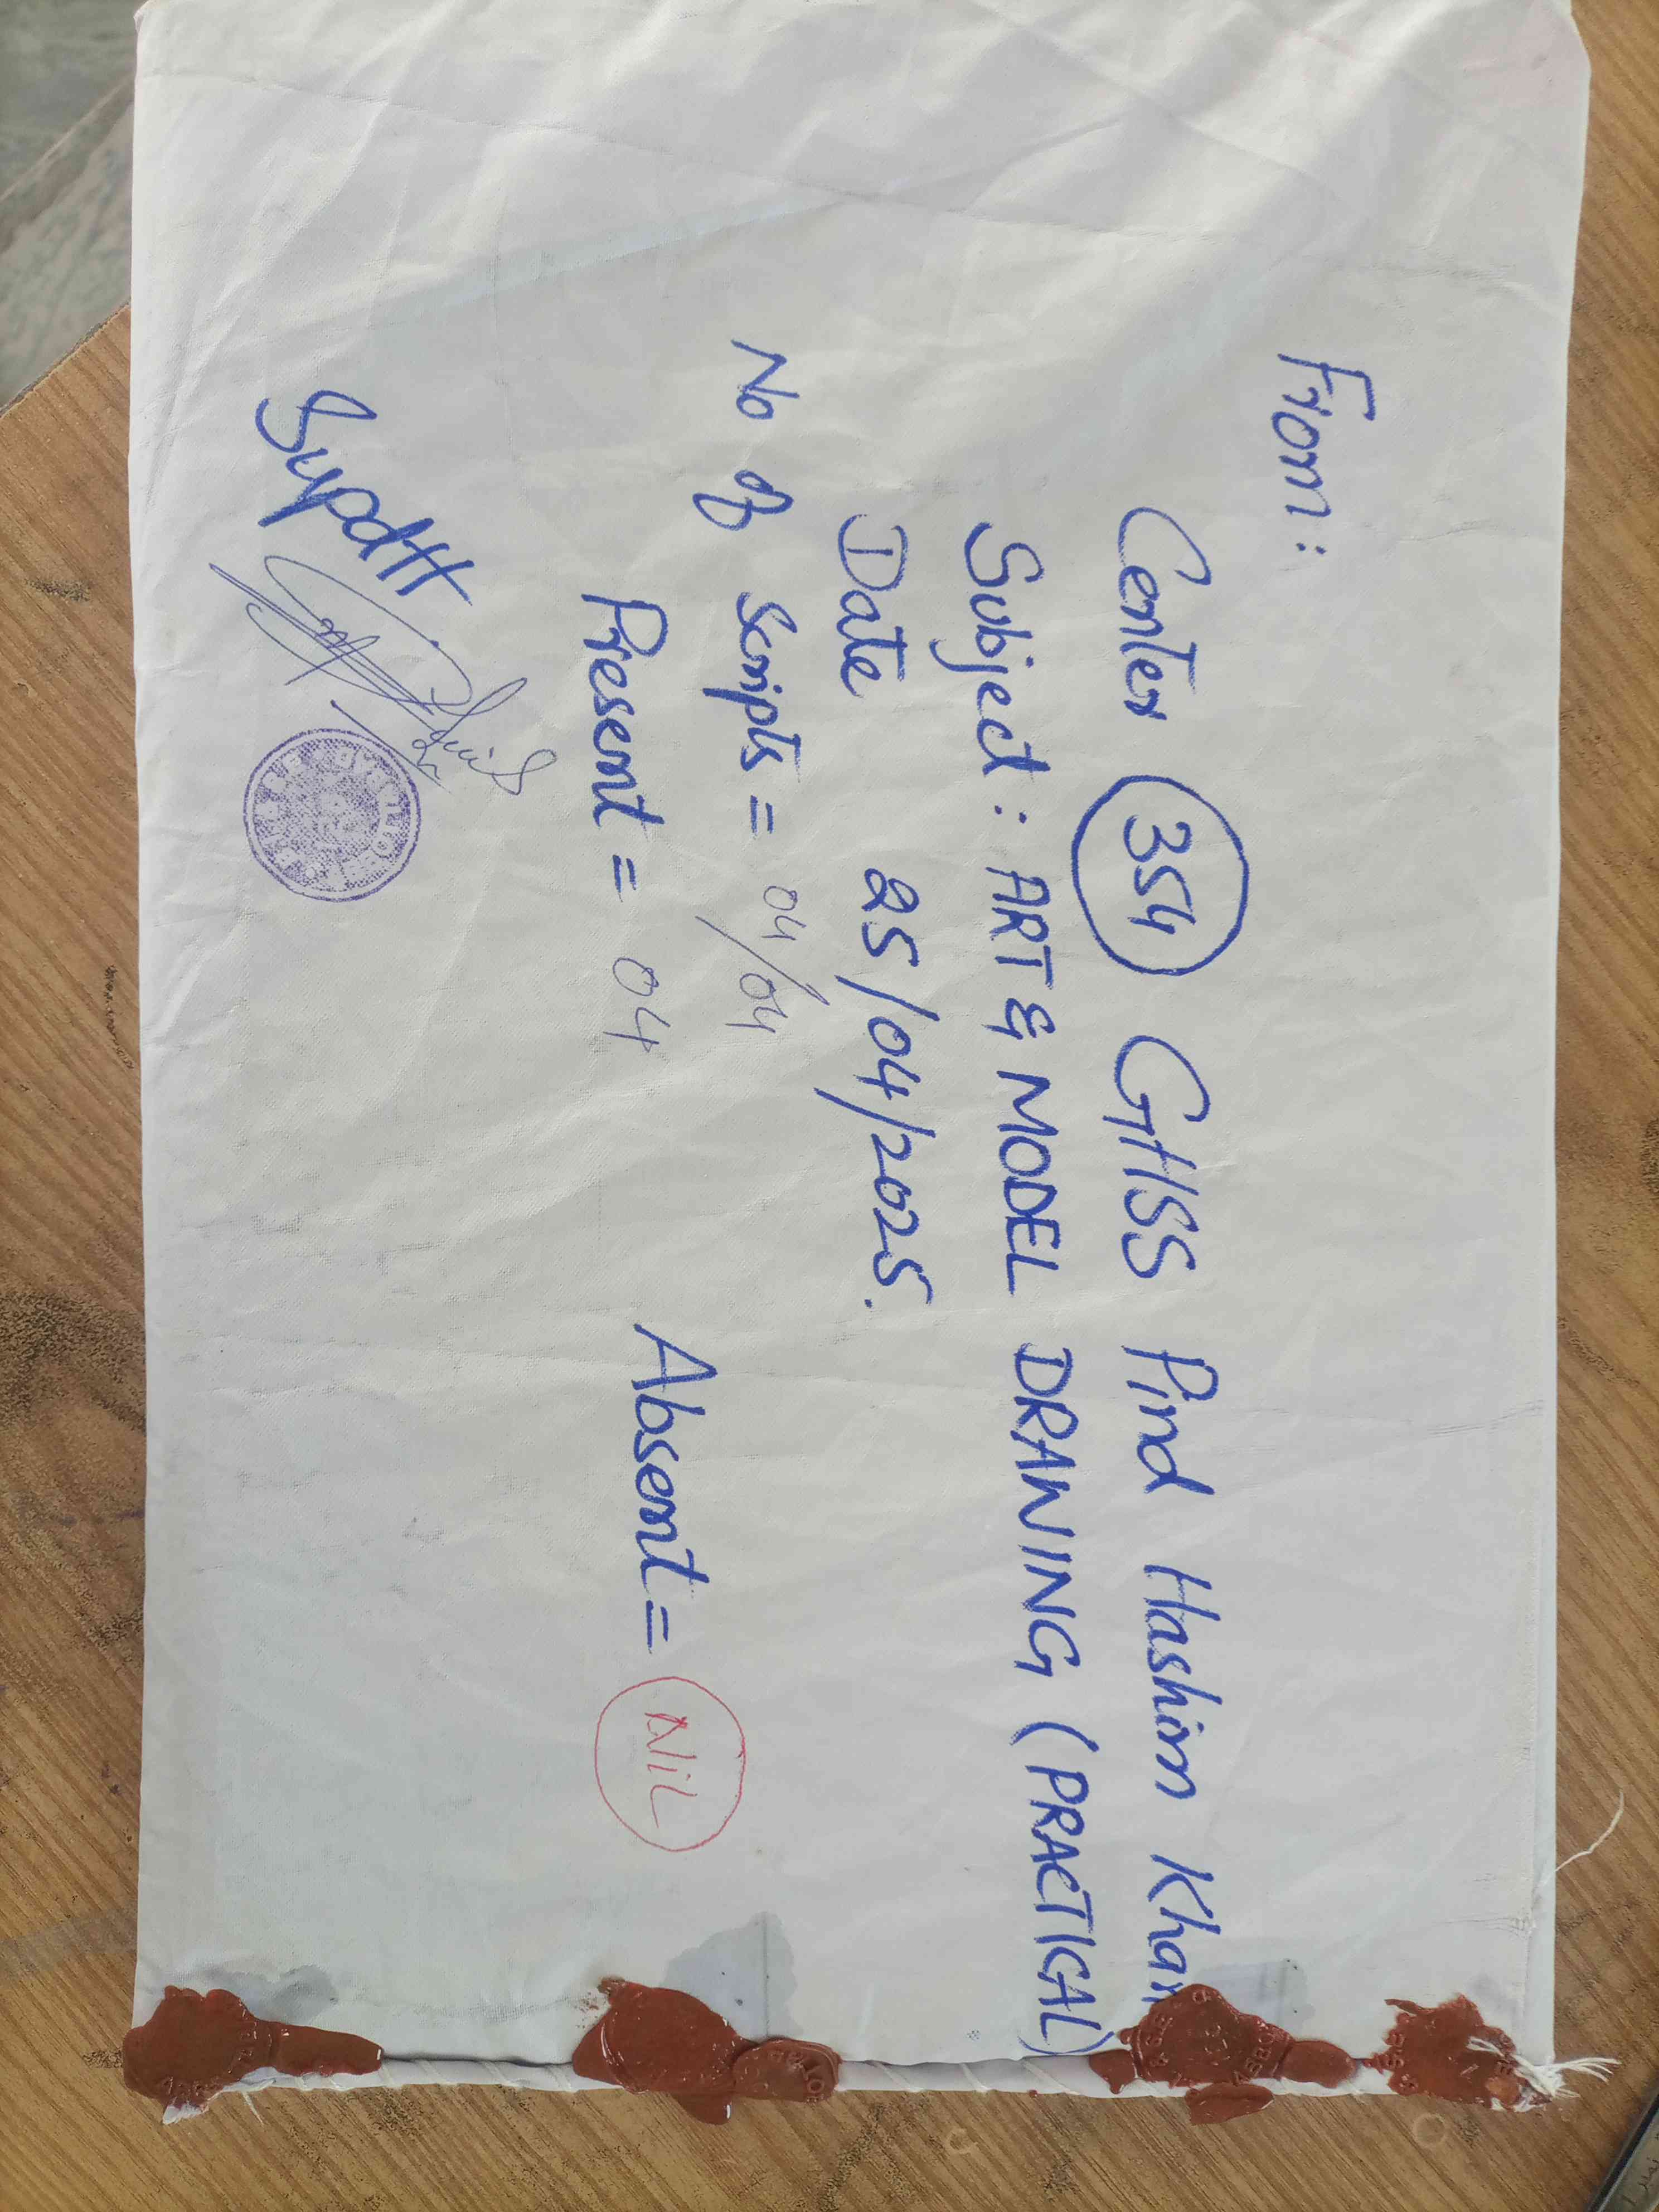 From:
Center 354 GHSS Pind Hashim Khan
Subject: ART & MODEL DRAWING (PRACTICAL)
Date 25/04/2025.
No of Scripts = 04/04
Present = 04 Absent = NiL
Supdtt